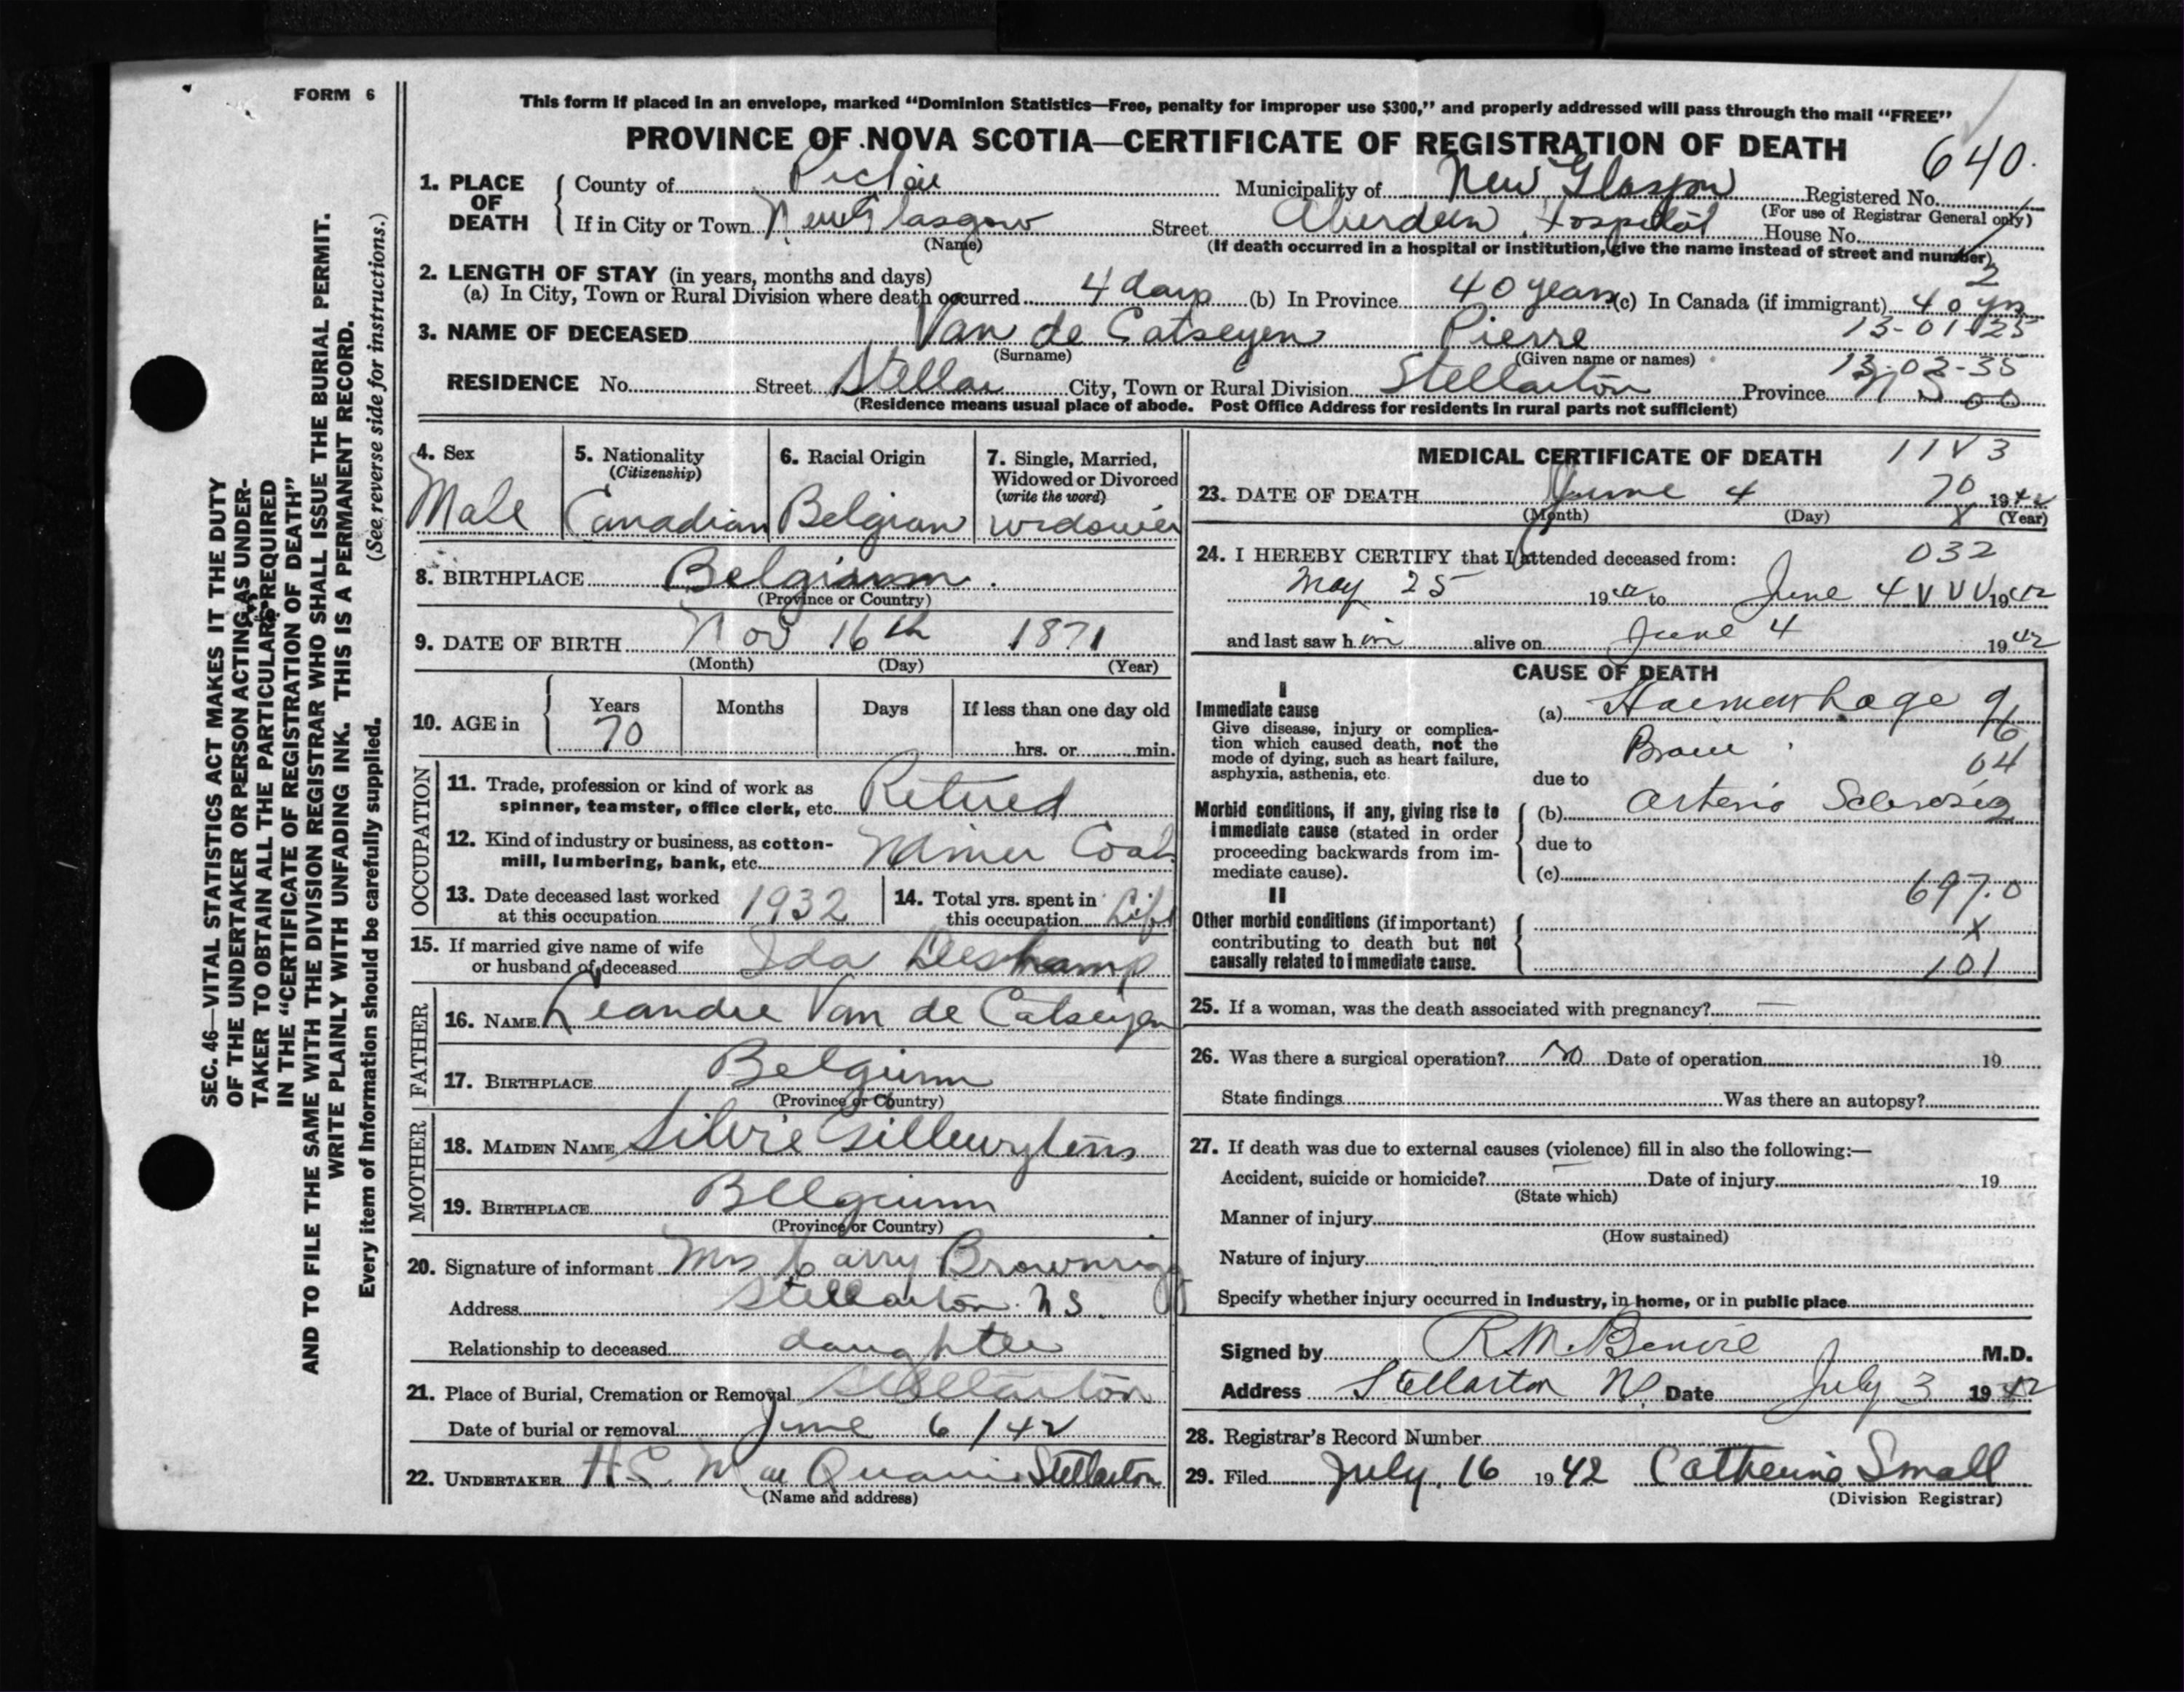 FORM 6
This form if placed in an envelope, marked “Dominion Statistics—Free, penalty for improper use $300,” and properly addressed will pass through the mail “FREE”
PROVINCE OF NOVA SCOTIA—CERTIFICATE OF REGISTRATION OF DEATH
640.
1. PLACE OF DEATH
County of Pictou Municipality of New Glasgow Registered No.
(For use of Registrar General only)
If in City or Town New Glasgow Street Aberdeen Hospital House No.
(Name) (If death occurred in a hospital or institution, give the name instead of street and number)
2. LENGTH OF STAY (in years, months and days)
2
(a) In City, Town or Rural Division where death occurred 4 days (b) In Province 40 years (c) In Canada (if immigrant) 40 yrs
13-01-25
3. NAME OF DECEASED Van de Catseyen Pierre
(Surname) (Given name or names)
13-03-35
RESIDENCE No. Street Stellar City, Town or Rural Division Stellarton Province N S 00
(Residence means usual place of abode. Post Office Address for residents in rural parts not sufficient)
4. Sex
Male
5. Nationality
(Citizenship)
Canadian
6. Racial Origin
Belgian
7. Single, Married, Widowed or Divorced
(write the word)
widower
8. BIRTHPLACE Belgium.
(Province or Country)
9. DATE OF BIRTH Nov 16th 1871
(Month) (Day) (Year)
10. AGE in
Years Months Days If less than one day old
70 hrs. or min.
OCCUPATION
11. Trade, profession or kind of work as
spinner, teamster, office clerk, etc. Retired
12. Kind of industry or business, as cotton-
mill, lumbering, bank, etc. Miner Coal
13. Date deceased last worked
at this occupation 1932
14. Total yrs. spent in
this occupation Life
15. If married give name of wife
or husband of deceased Ida Deschamp
FATHER
16. NAME Leandre Van de Catseyen
17. BIRTHPLACE Belgium
(Province or Country)
MOTHER
18. MAIDEN NAME Silvie
19. BIRTHPLACE Belgium
(Province or Country)
20. Signature of informant Mrs Harry Brownrigg
Address Stellarton NS
Relationship to deceased daughter
21. Place of Burial, Cremation or Removal Stellarton
Date of burial or removal June 6/42
22. UNDERTAKER Stellarton
(Name and address)
MEDICAL CERTIFICATE OF DEATH
11V3
23. DATE OF DEATH June 4 70 1942
(Month) (Day) X (Year)
24. I HEREBY CERTIFY that I attended deceased from:
032
May 25 1942 to June 4 VVV 1942
and last saw him alive on June 4 1942
CAUSE OF DEATH
I
Immediate cause
Give disease, injury or complica-
tion which caused death, not the
mode of dying, such as heart failure,
asphyxia, asthenia, etc.
(a) Haemorrhage 9/6
Brain 04
due to
Morbid conditions, if any, giving rise to
immediate cause (stated in order
proceeding backwards from im-
mediate cause).
(b) Arterio Sclerosis 2
due to
(c)
697.0
II
Other morbid conditions (if important)
contributing to death but not
causally related to immediate cause.
X
101
25. If a woman, was the death associated with pregnancy? —
26. Was there a surgical operation? no Date of operation 19
State findings Was there an autopsy?
27. If death was due to external causes (violence) fill in also the following:—
Accident, suicide or homicide? — Date of injury 19
(State which)
Manner of injury
(How sustained)
Nature of injury
Specify whether injury occurred in industry, in home, or in public place
Signed by R.M. Benvie M.D.
Address Stellarton NS. Date July 3 1942
28. Registrar's Record Number
29. Filed July 16 1942 Catherine Small
(Division Registrar)
SEC. 46—VITAL STATISTICS ACT MAKES IT THE DUTY
OF THE UNDERTAKER OR PERSON ACTING AS UNDER-
TAKER TO OBTAIN ALL THE PARTICULARS REQUIRED
IN THE “CERTIFICATE OF REGISTRATION OF DEATH”
AND TO FILE THE SAME WITH THE DIVISION REGISTRAR WHO SHALL ISSUE THE BURIAL PERMIT.
WRITE PLAINLY WITH UNFADING INK. THIS IS A PERMANENT RECORD.
Every item of information should be carefully supplied. (See reverse side for instructions.)